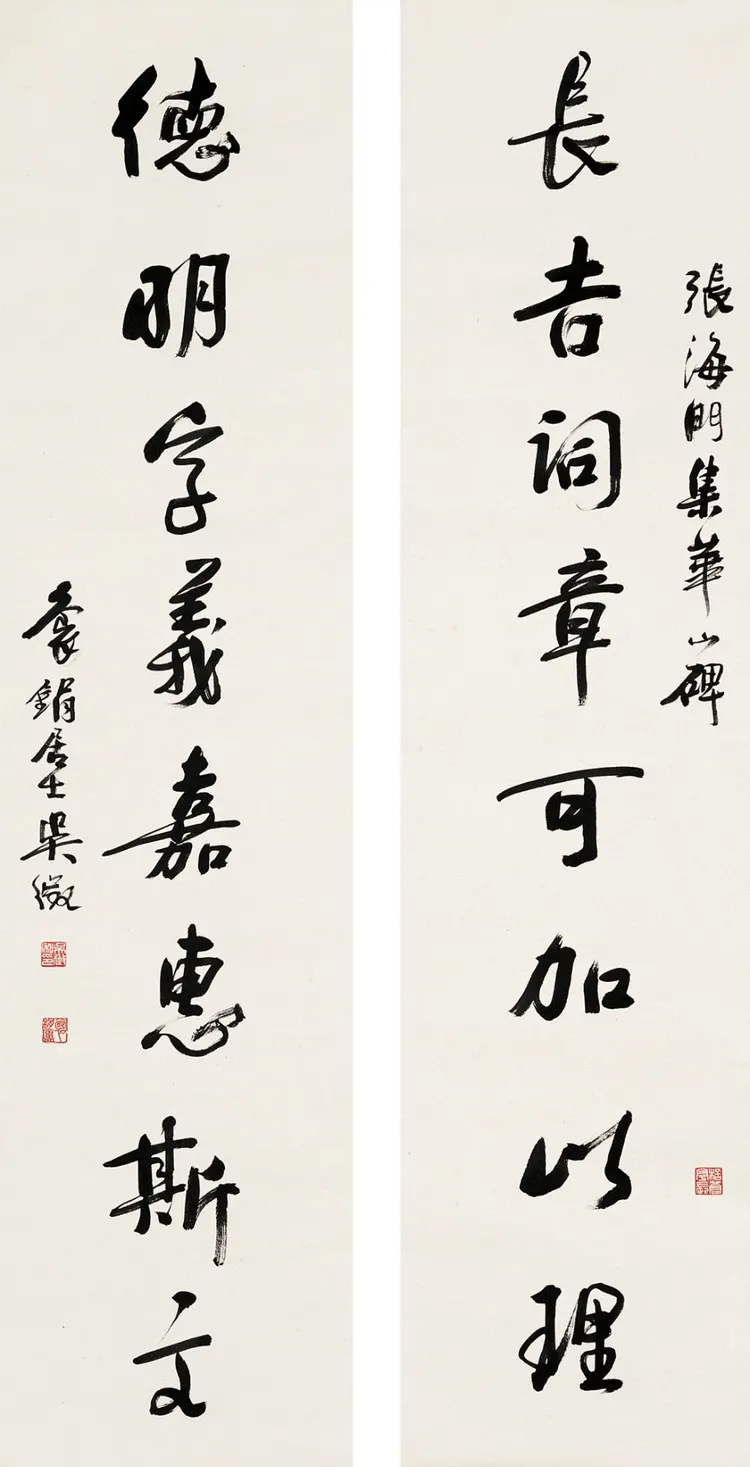 張海門集華山碑
長吉詞章可加以理
德明字義嘉惠斯文
袌鋗居士吳徵